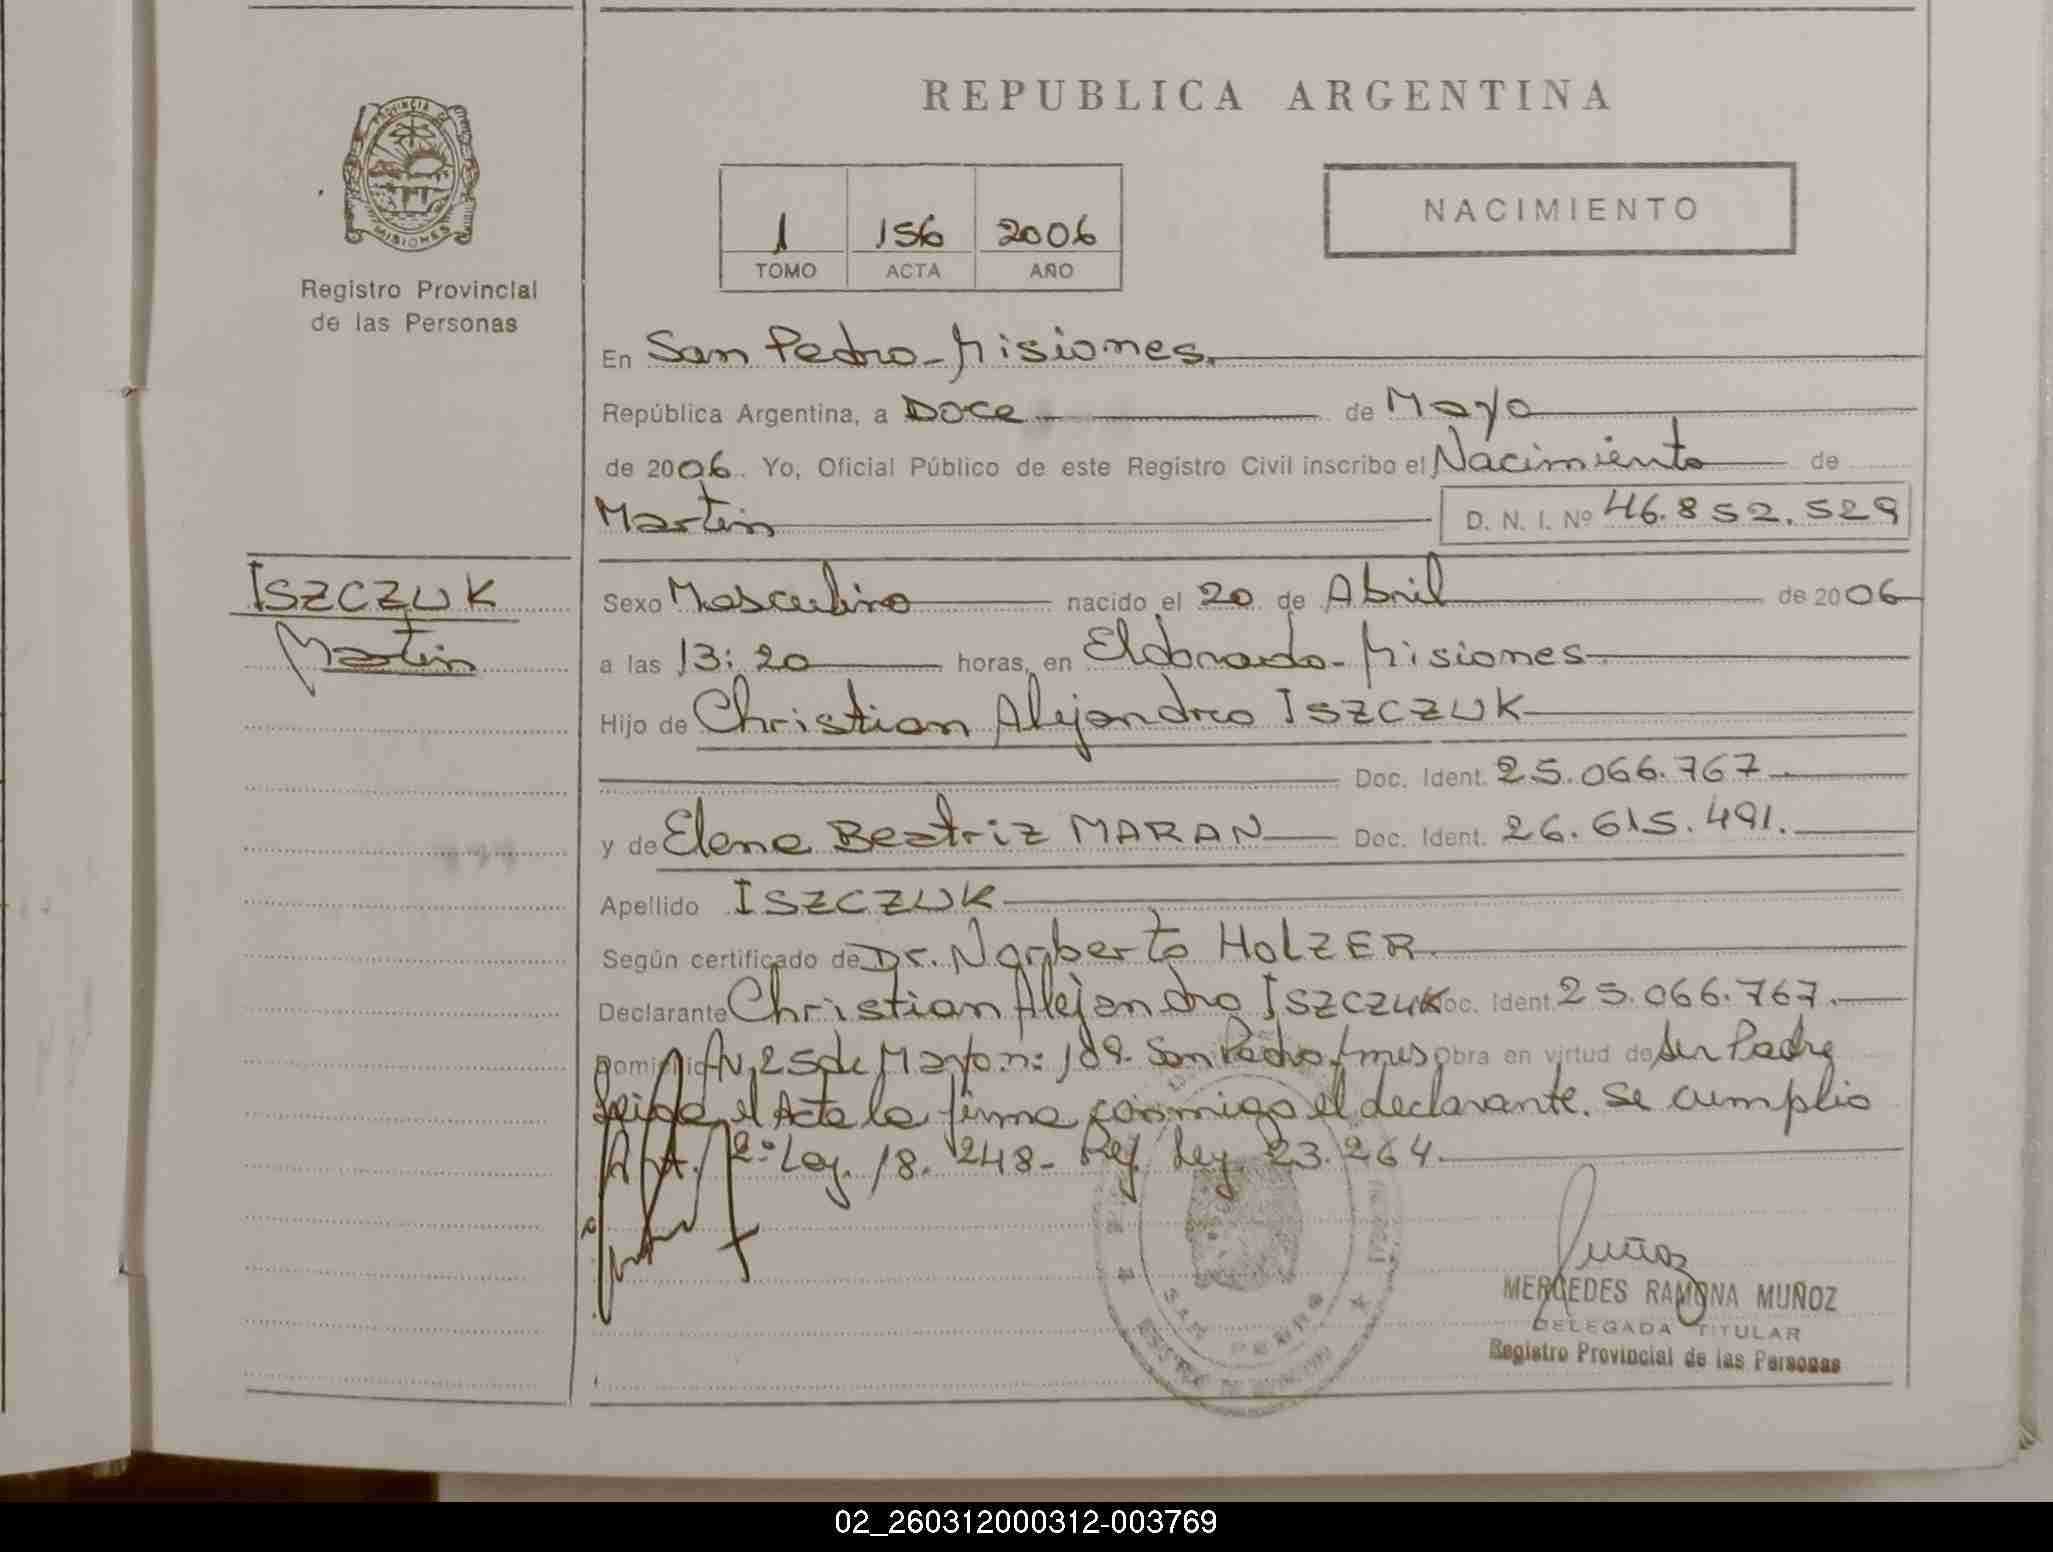 PROVINCIA DE
MISIONES
Registro Provincial
de las Personas
REPUBLICA ARGENTINA
1 156 2006
TOMO ACTA AÑO
NACIMIENTO
En San Pedro-Misiones.
República Argentina, a Doce de Mayo
de 2006. Yo, Oficial Público de este Registro Civil inscribo el Nacimiento de
Martin D. N. I. Nº 46.852.529
ISZCZUK
Martin
Sexo Masculino nacido el 20 de Abril de 2006
a las 13:20 horas, en Eldorado-Misiones
Hijo de Christian Alejandro ISZCZUK
Doc. Ident. 25.066.767.
y de Elena Beatriz MARAN Doc. Ident. 26.615.491.
Apellido ISZCZUK
Según certificado de Dr. Norberto HOLZER.
Declarante Christian Alejandro ISZCZUK Doc. Ident. 25.066.767.
Domicilio Av. 25 de Mayo n: 189. San Pedro, mnes Obra en virtud de ser Padre
leida el Acta la firma conmigo el declarante. Se cumplio
Art. 2º Ley. 18.248- Ref. Ley 23.264.
SAN PEDRO
Muñoz
MERCEDES RAMONA MUÑOZ
DELEGADA TITULAR
Registro Provincial de las Personas
02_260312000312-003769